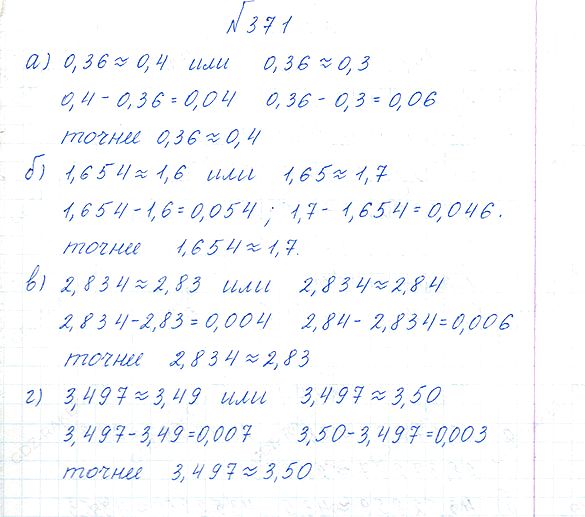 №371
а) 0,36≈0,4 или 0,36≈0,3
0,4-0,36=0,04 0,36-0,3=0,06
точнее 0,36≈0,4
б) 1,654≈1,6 или 1,65≈1,7
1,654-1,6=0,054 ; 1,7-1,654=0,046.
точнее 1,654≈1,7.
в) 2,834≈2,83 или 2,834≈2,84
2,834-2,83=0,004 2,84-2,834=0,006
точнее 2,834≈2,83
г) 3,497≈3,49 или 3,497≈3,50
3,497-3,49=0,007 3,50-3,497=0,003
точнее 3,497≈3,50